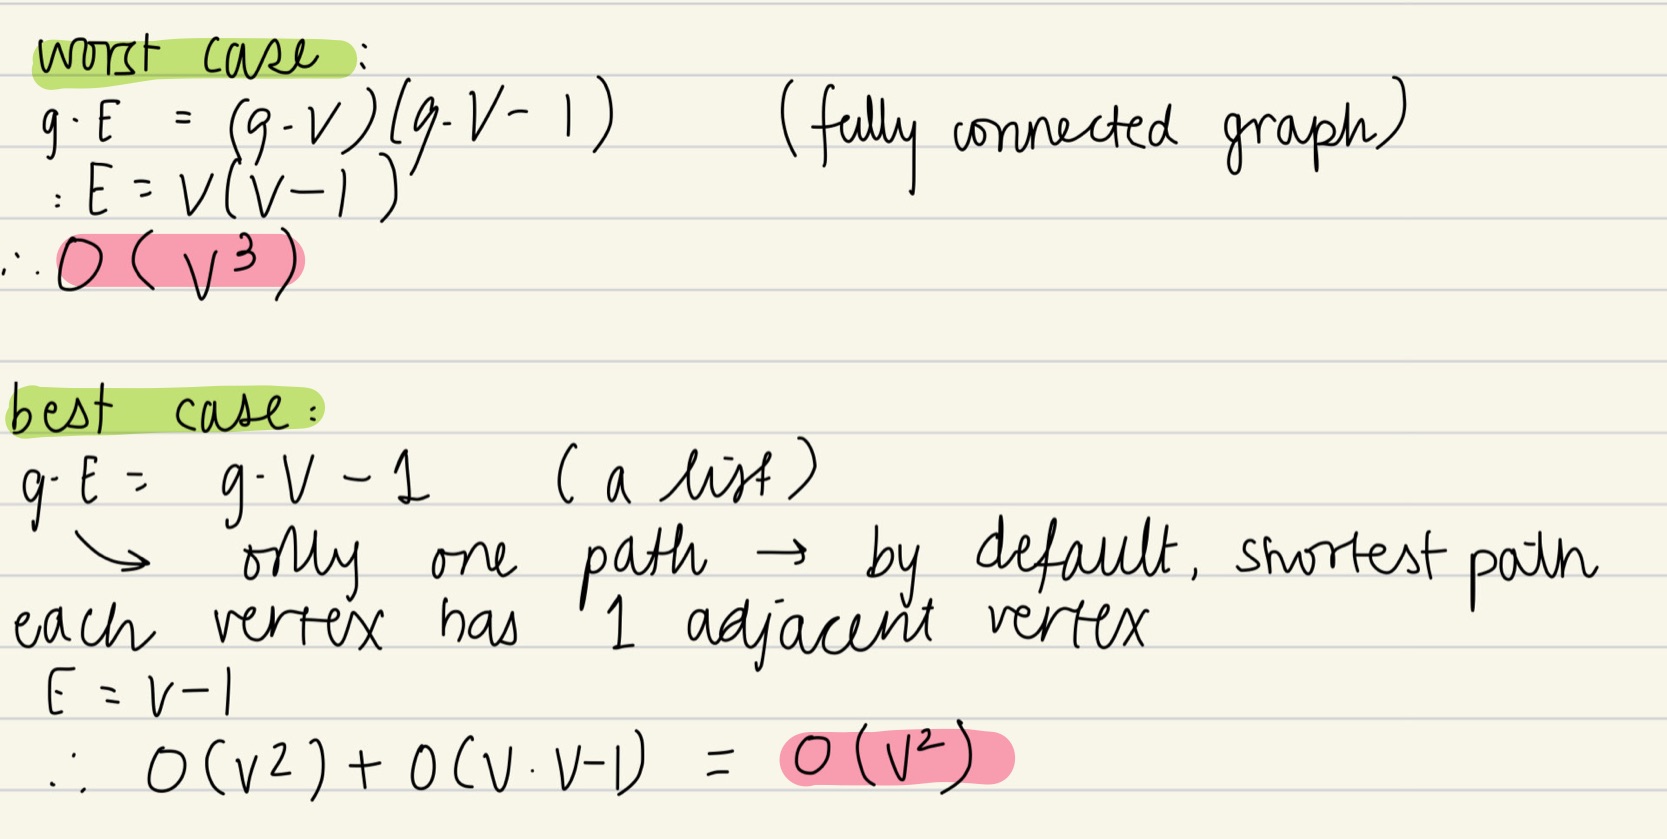 worst case:
g.E = (g.V)(g.V-1) (fully connected graph)
: E = V(V-1)
∴ O(V³)
best case:
g.E = g.V - 1 (a list)
↘ only one path → by default, shortest path
each vertex has 1 adjacent vertex
E = V-1
∴ O(V²) + O(V.V-1) = O(V²)